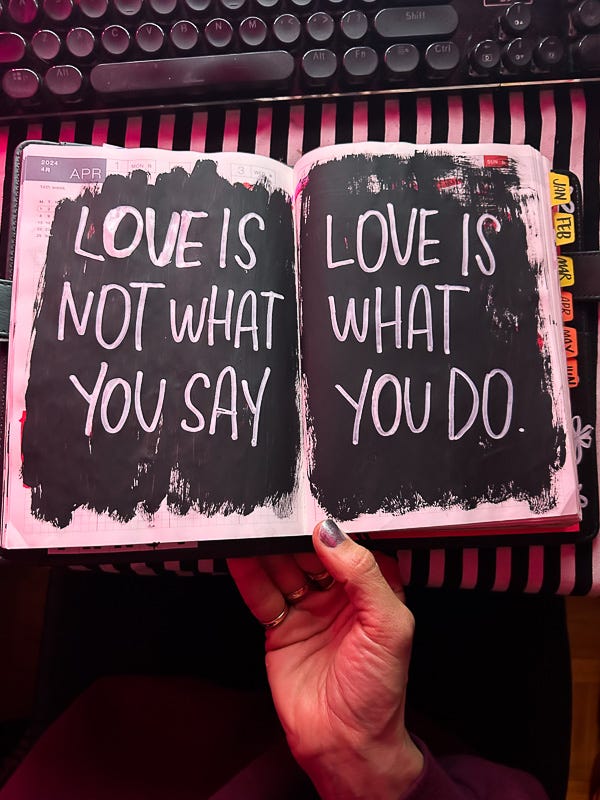 Shift
Z
X
C
V
B
N
M
Alt
Alt
Fn
Ctrl
2024
4月
APR
1 MON
3 WED
SUN
14th week
LOVE IS
NOT WHAT
YOU SAY
LOVE IS
WHAT
YOU DO.
JAN
FEB
MAR
APR
MAY
JUN